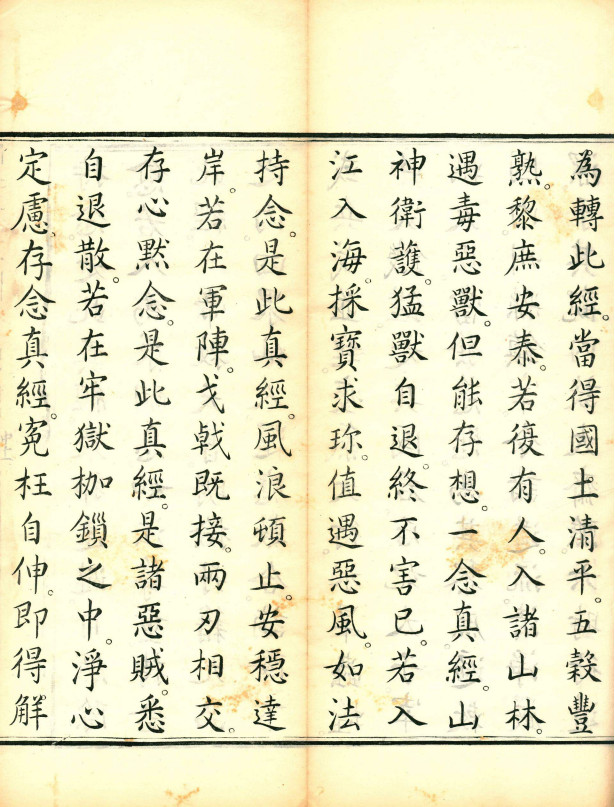 為轉此經。當得國土清平。五穀豐
熟。黎庶安泰。若復有人。入諸山林。
遇毒惡獸。但能存想。一念真經。山
神衛護。猛獸自退。終不害已。若入
江入海。採寶求珎。值遇惡風。如法
持念。是此真經。風浪頓止。安穩達
岸。若在軍陣。戈戟既接。兩刃相交。
存心默念。是此真經。是諸惡賊。悉
自退散。若在牢獄枷鎖之中。淨心
定慮、存念真經。寃枉自伸。即得解